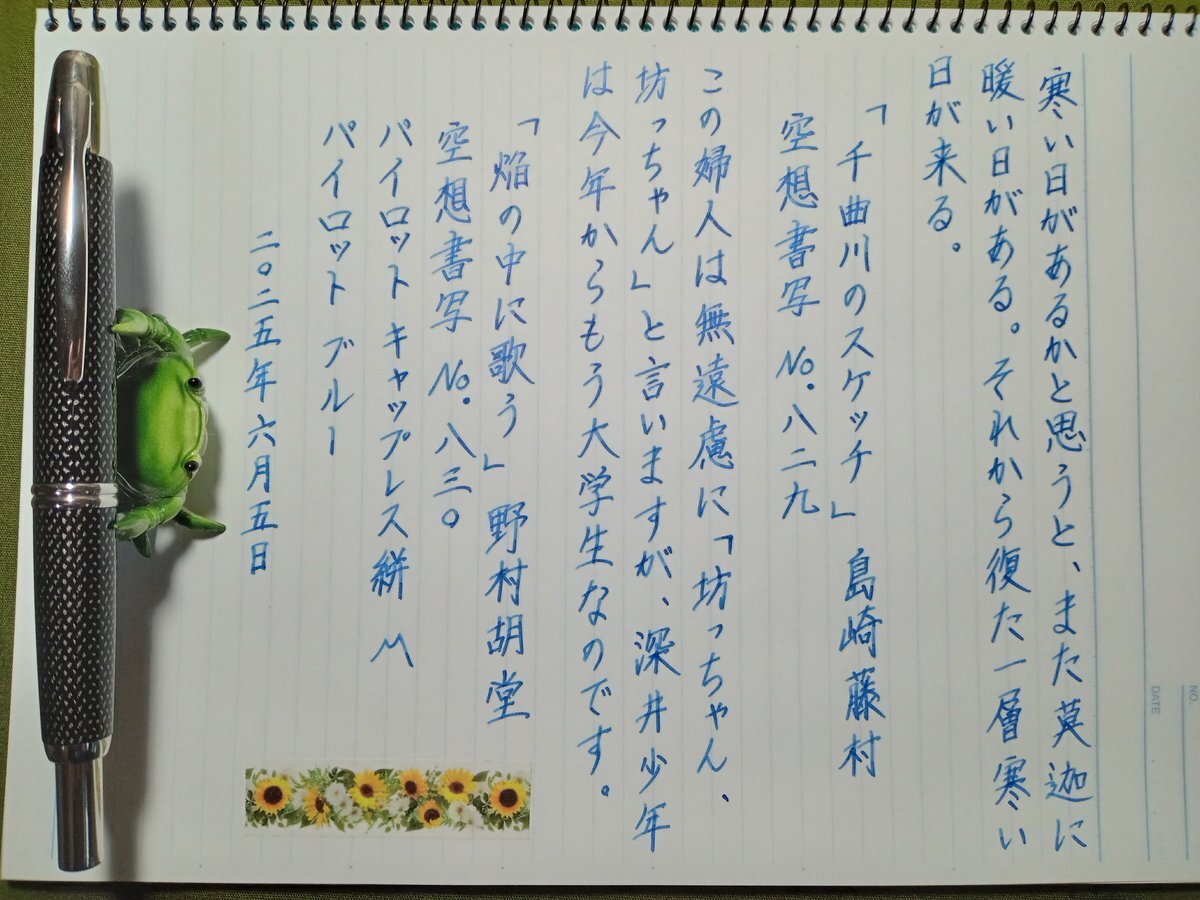 寒い日があるかと思うと、また莫迦に
暖い日がある。それから復た一層寒い
日が来る。
「千曲川のスケッチ」 島崎藤村
空想書写 No.八二九
この婦人は無遠慮に「坊っちゃん、
坊っちゃん」と言いますが、深井少年
は今年からもう大学生なのです。
「焔の中に歌う」 野村胡堂
空想書写 No.八三〇
パイロット キャップレス絣 M
パイロット ブルー
二〇二五年六月五日
NO.
DATE